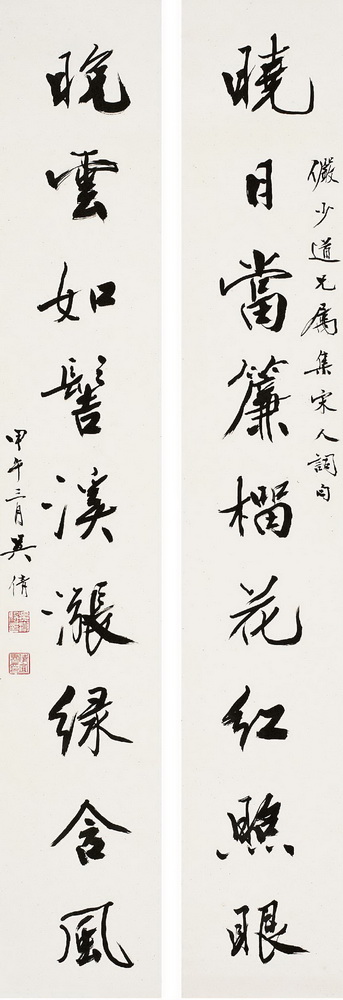 儼少道兄屬集宋人詞句
曉日當簾榴花紅照眼
晚雲如髻溪漲綠含風
甲午三月吳倩